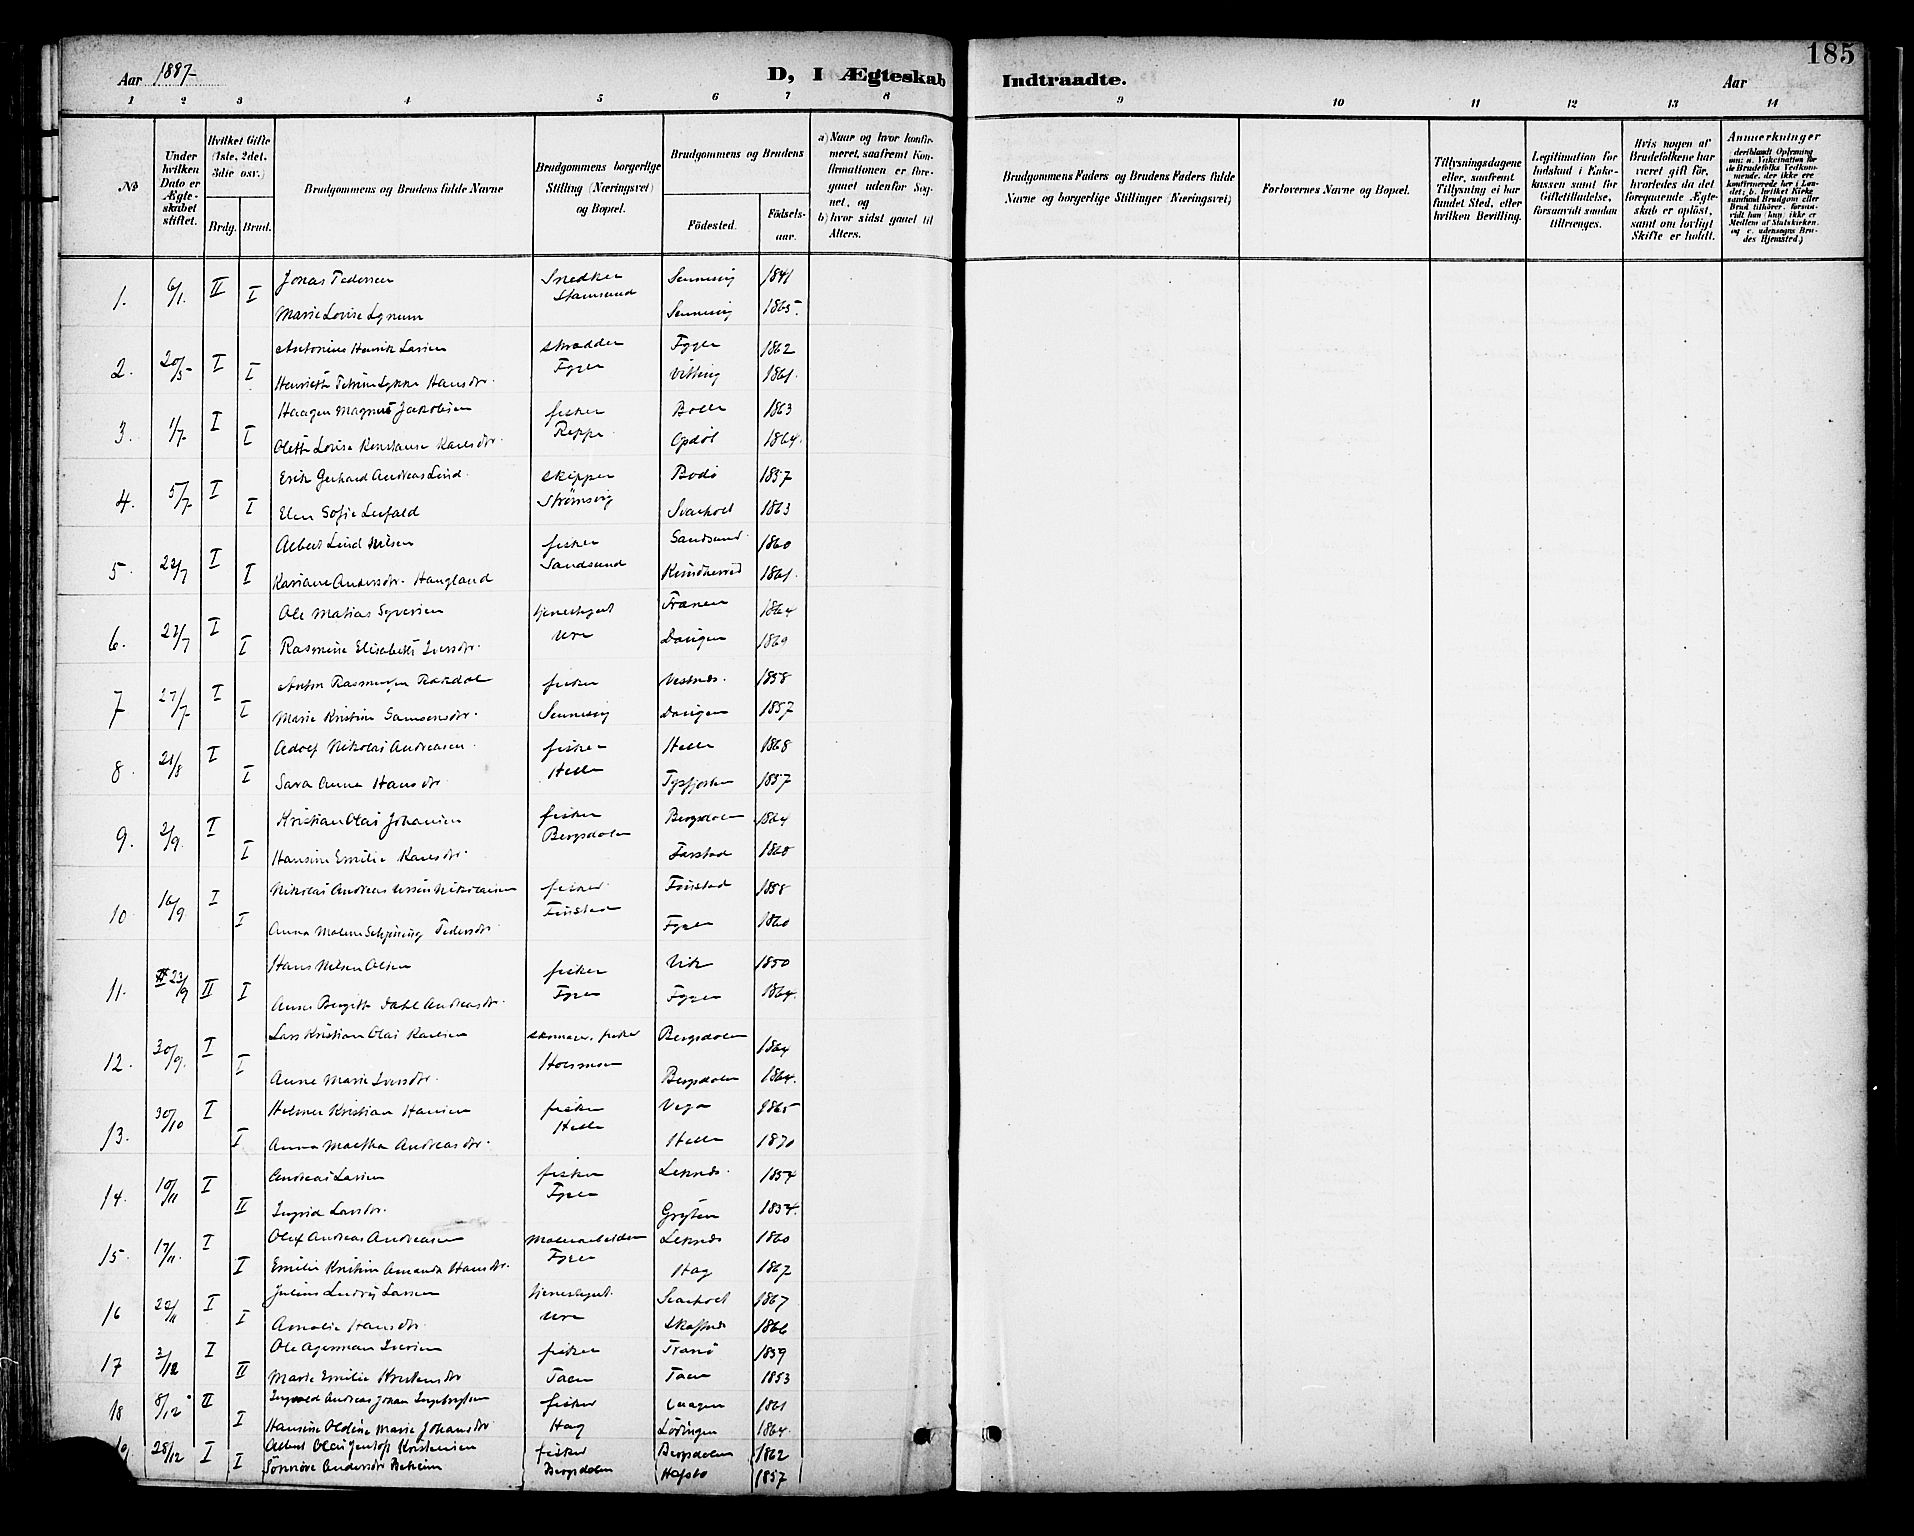 Aar 1887-
D, I Ægteskab Indtraadte.
Aar
185
1 2 3 4 5 6 7 8 9 10 11 12 13 14
No
Under hvilken Dato er Ægteskabet stiftet.
Hvilket Gifte (1ste, 2det, 3die osv.)
Brdg. Brud.
Brudgommens og Brudens fulde Navne
Brudgommens borgerlige Stilling (Næringsvei) og Bopæl.
Brudgommens og Brudens
Fødested. Fødsels-aar.
a) Naar og hvor konfirmeret, saafremt Konfirmationen er foregaaet udenfor Sognet, og
b) hvor sidst gaaet til Alters.
Brudgommens Faders og Brudens Faders fulde Navne og borgerlige Stillinger (Næringsvei)
Forlovernes Navne og Bopæl.
Tillysningsdagene eller, saafremt Tillysning ei har fundet Sted, efter hvilken Bevilling.
Legitimation for Indskud i Enkekassen samt for Giftetilladelse, forsaavidt saadan tiltrænges.
Hvis nogen af Brudefolkene har været gift før, hvorledes da det foregaaende Ægteskab er opløst, samt om lovligt Skifte er holdt.
Anmærkninger (deriblandt Oplysning om: a. Vakcination for de Brudefolks Vedkommende, der ikke ere konfirmerede her i Landet; b. hvilket Kirkesamfund Brudgom eller Brud tilhører, forsaavidt han (hun) ikke er Medlem af Statskirken, og c. udensogns Brudes Hjemsted.)
1. 6/1 II Jonas Pedersen Snedker Sennesvig 1841
I Marie Lovise Lynum Stamsund Sennesvig 1865
2. 20/5 I Antonius Henrik Larsen skrædder Fygle 1862
I Henriette Petrine Lykke Hansdr. Fygle Vitting 1861
3. 1/7 I Haagen Magnus Jakobsen fisker Bolle 1863
I Olette Lovise Konstanse Karlsdr. Reppe Opdøl 1864
4. 5/7 I Erik Gerhard Andreas Lind skipper Bodø 1857
I Elen Sofie Leifald Strømsvig Svarholt 1863
5. 22/7 I Albert Lind Nilsen fisker Sandsund 1860
I Kariane Andersdr. Haugland Sandsund Kvindherred 1861
6. 27/7 I Ole Matias Syversen tjenestegut Franen 1864
I Rasmine Elisabeth Iversdr. Ure Davigen 1869
7 27/7 I Anton Rasmussen Rakdal fisker Vestnes 1858
I Marie Kristine Samsonsdr. Sennesvig Davigen 1857
8. 21/8 I Adolf Nikolai Andreasen fisker Helle 1868
I Sara Anna Hansdr Helle Tysfjorden 1857
9. 2/9 I Kristian Olai Johansen fisker Bergsdalen 1864
I Hansine Emilie Karlsdr. Bergsdalen Farstad 1860
10 16/9 I Nikolai Andreas Nikolaisen fisker Finstad 1858
I Anna Malene Schjøning Pedersdr. Finstad Fygle 1860
11. 23/9 II Hans Nilsen Olsen fisker Vik 1850
I Anne Bergitte Dahl Andreasdr. Fygle Fygle 1864
12. 30/9 I Lars Kristian Olai Karlsen skomager, fisker Bergsdalen 1864
I Anne Marie Iversdr. Holsmoen Bergsdalen 1864
13. 30/10 I Helmer Kristian Hansen fisker Vega 1865
I Anna Martha Andreasdr. Helle Helle 1870
14. 10/11 I Andreas Larsen fisker Leknes 1854
II Ingrid Larsdr. Fygle Gryten 1854
15. 17/11 I Olaf Andreas Andreasen Malerarbeider Leknes 1860
I Emilie Kristine Amanda Hansdr. Fygle Hag 1867
16 22/11 I Julius Larsen tjenestegut Svarholt 1867
I Amalie Hansdr. Ure Skafnes 1866
17 2/12 I Ole Agerman Iversen fisker Tranø 1859
II Marie Emilie Kristensdr Taen Taen 1853
18 8/12 II Ingvald Andreas Johan Ingebrigtsen fisker Vaagen 1861
I Hansine Oldine Marie Johansdr Hag Lødingen 1864
19 28/12 I Albert Olai Jentoft Kristensen fisker Bergsdalen 1862
I Andersdr Bergsdalen Hafslo 1857